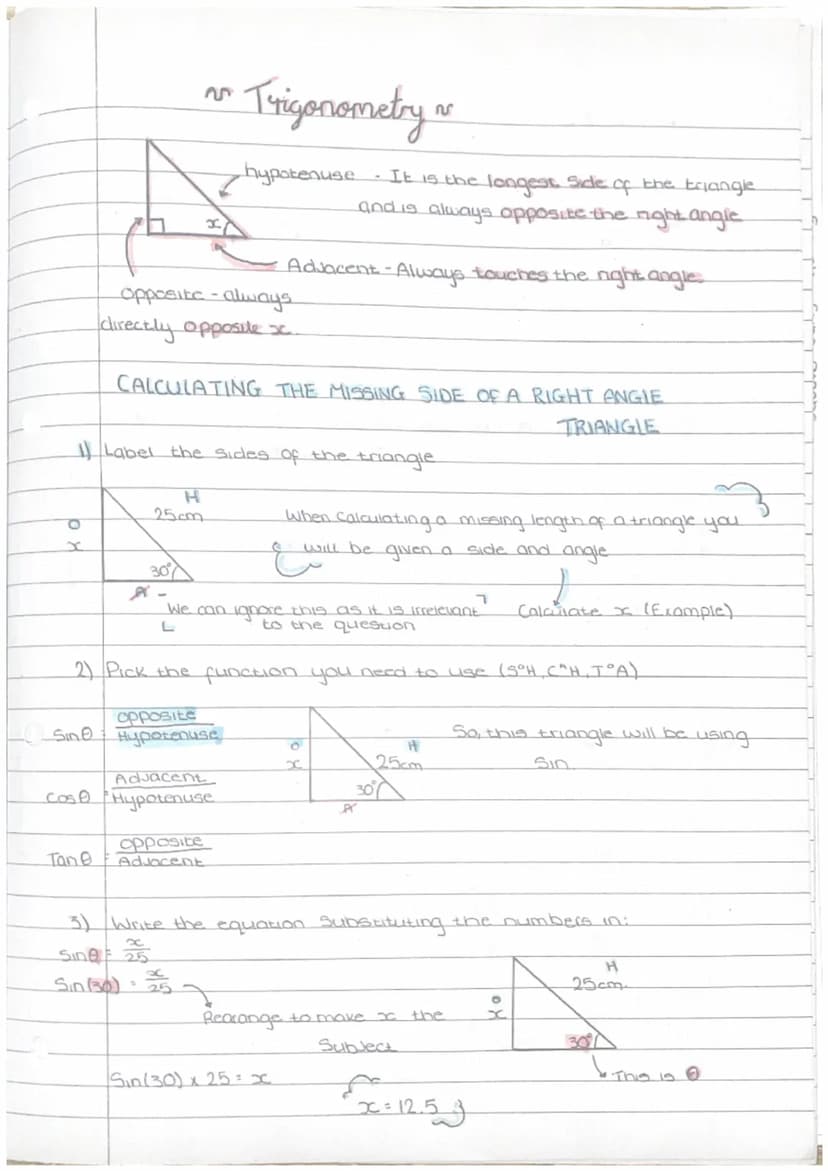 ~ Trigonometry ~
hypotenuse - It is the longest side of the triangle
and is always opposite the right angle
x
Adjacent - Always touches the right angle.
opposite - always
directly opposite x.
CALCULATING THE MISSING SIDE OF A RIGHT ANGLE
TRIANGLE
1) Label the sides of the triangle
H
25cm
O
x
30°
A -
When calculating a missing length of a triangle you
will be given a side and angle
We can ignore this as it is irrelevant
to the question
Calculate x (Example)
2) Pick the function you need to use (SᵒH, CᴬH, TᵒA)
Sinθ = opposite
Hypotenuse
O
x
H
25cm
30°
A
So, this triangle will be using
Sin.
Cosθ = Adjacent
Hypotenuse
Tanθ = opposite
Adjacent
3) Write the equation substituting the numbers in:
Sinθ = x/25
Sin(30) = x/25
Rearange to make x the
Subject
H
25cm.
O
x
30°
This is θ
Sin(30) x 25 = x
x = 12.5